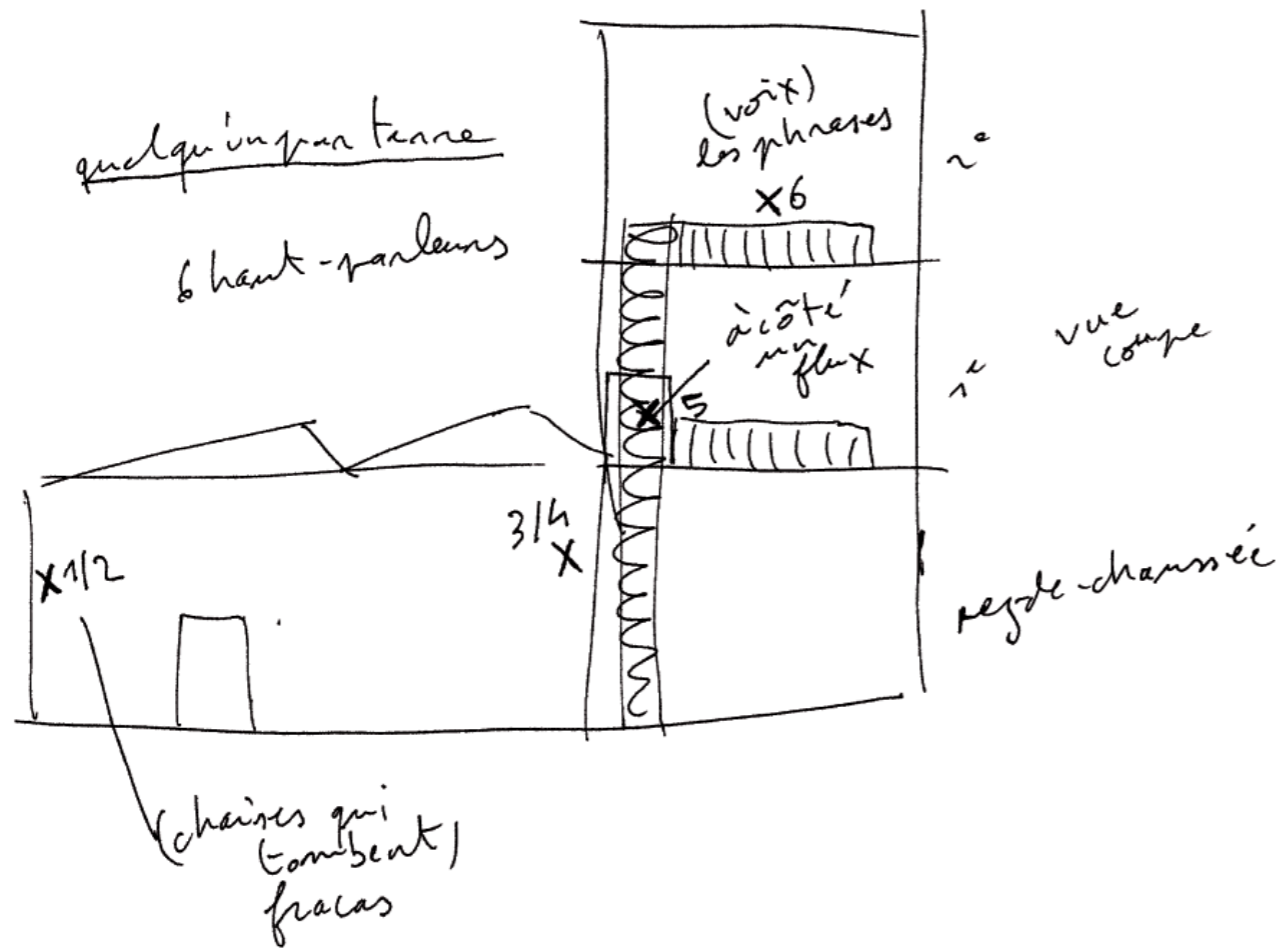 quelqu'un par terre
6 haut-parleurs
(voix)
les phrases
x6
2e
à côté
un
flux
5
1e
vue
coupe
3/4
x
x1/2
rez-de-chaussée
(chaises qui
tombent)
fracas